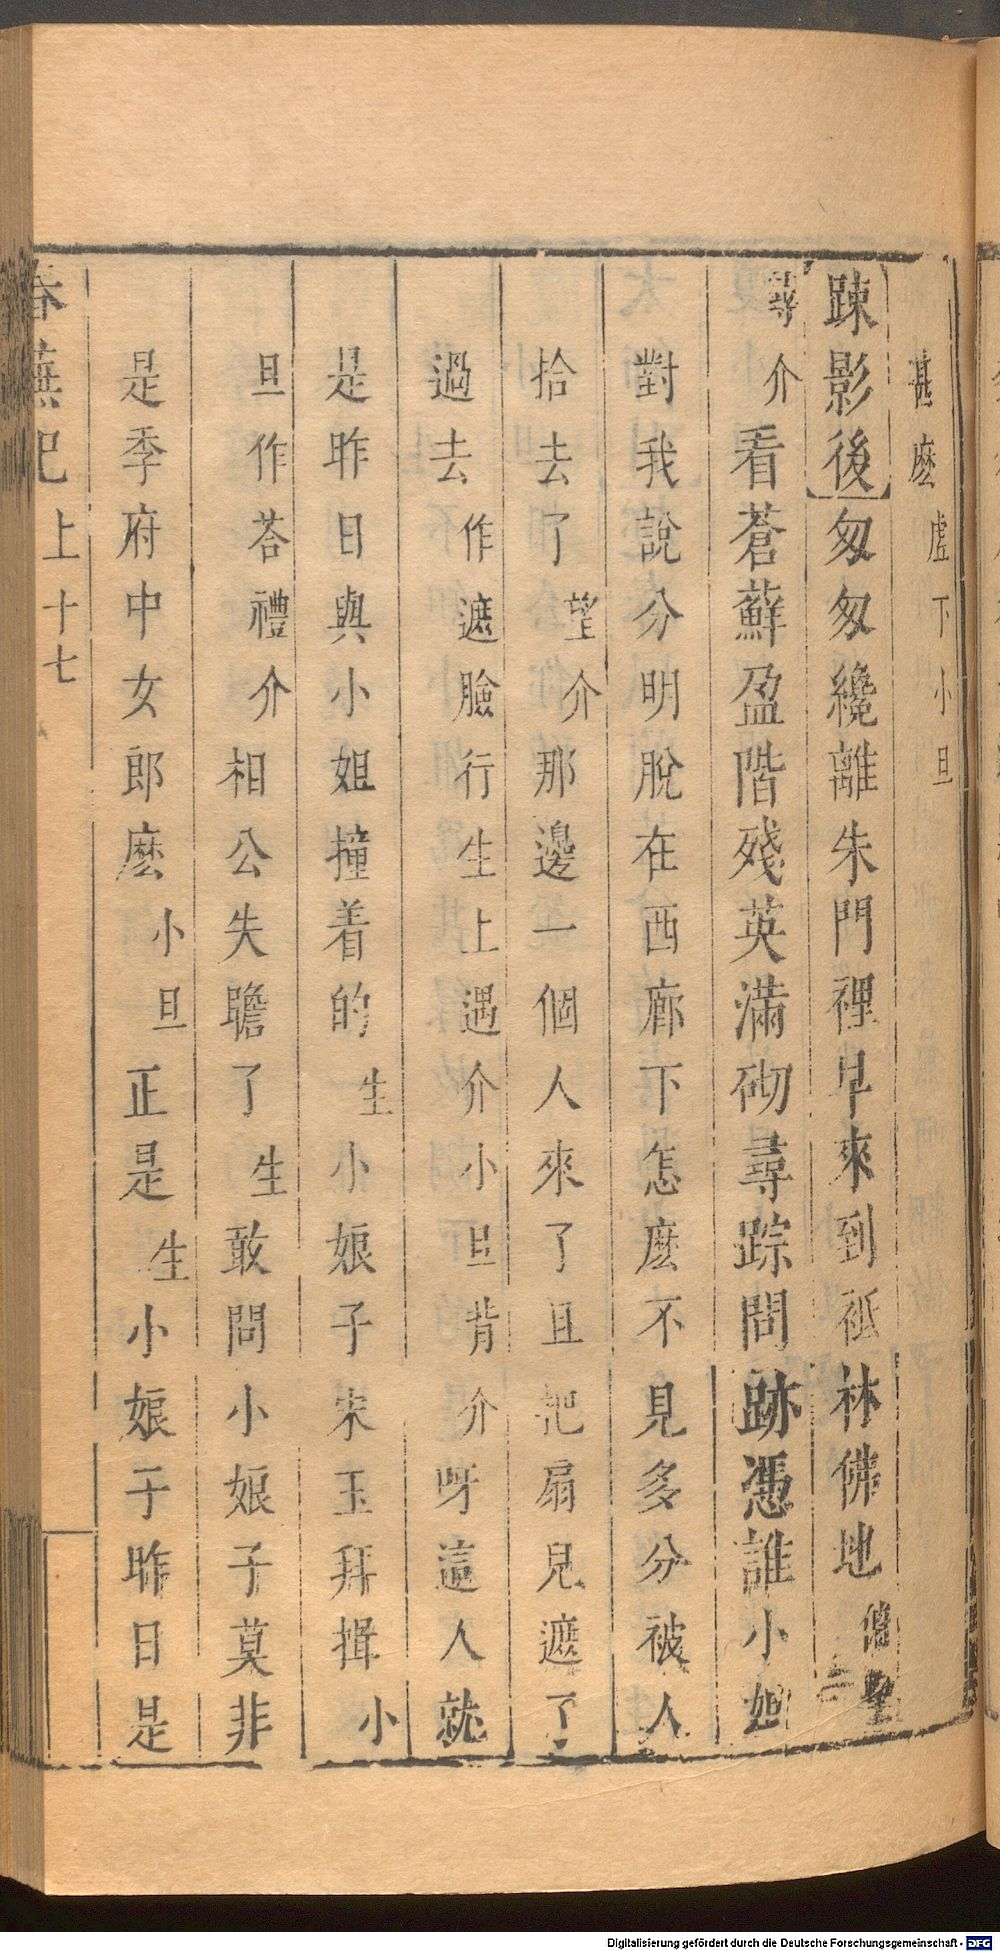 甚麽虛下小旦
踈影後匆匆纔離朱門裡早來到祇林佛地
尋介看蒼蘚盈階殘英滿砌尋踪問跡憑誰小姐
對我說分明脫在西廊下怎麽不見多分被人
拾去了望介那邊一個人來了且把扇兒遮了
過去作遮臉行生上遇介小旦背介呀這人就
是昨日與小姐撞着的生小娘子宋玉拜揖小
旦作荅禮介相公失瞻了生敢問小娘子莫非
是季府中女郎麽小旦正是生小娘子昨日是
春蕪記 上 十七
Digitalisierung gefördert durch die Deutsche Forschungsgemeinschaft - DFG